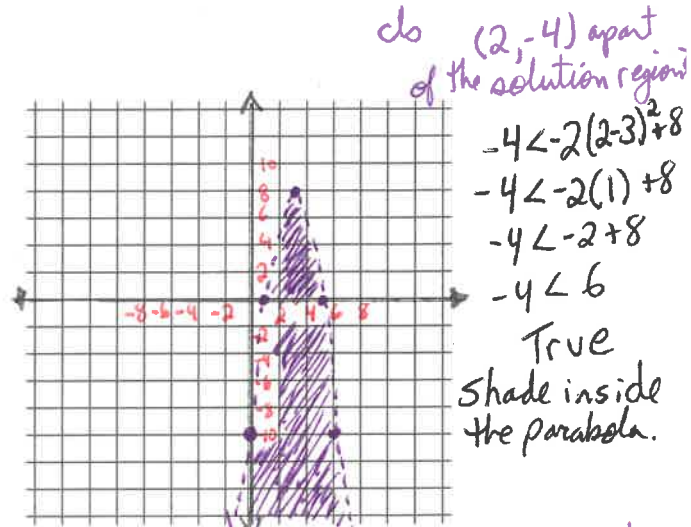 Is (2,-4) apart
of the solution region?
-4<-2(2-3)²+8
-4<-2(1)+8
-4<-2+8
-4<6
True
Shade inside
the parabola.
10
8
6
4
2
-8 -6 -4 -2 2 4 6 8
-2
-4
-6
-8
-10